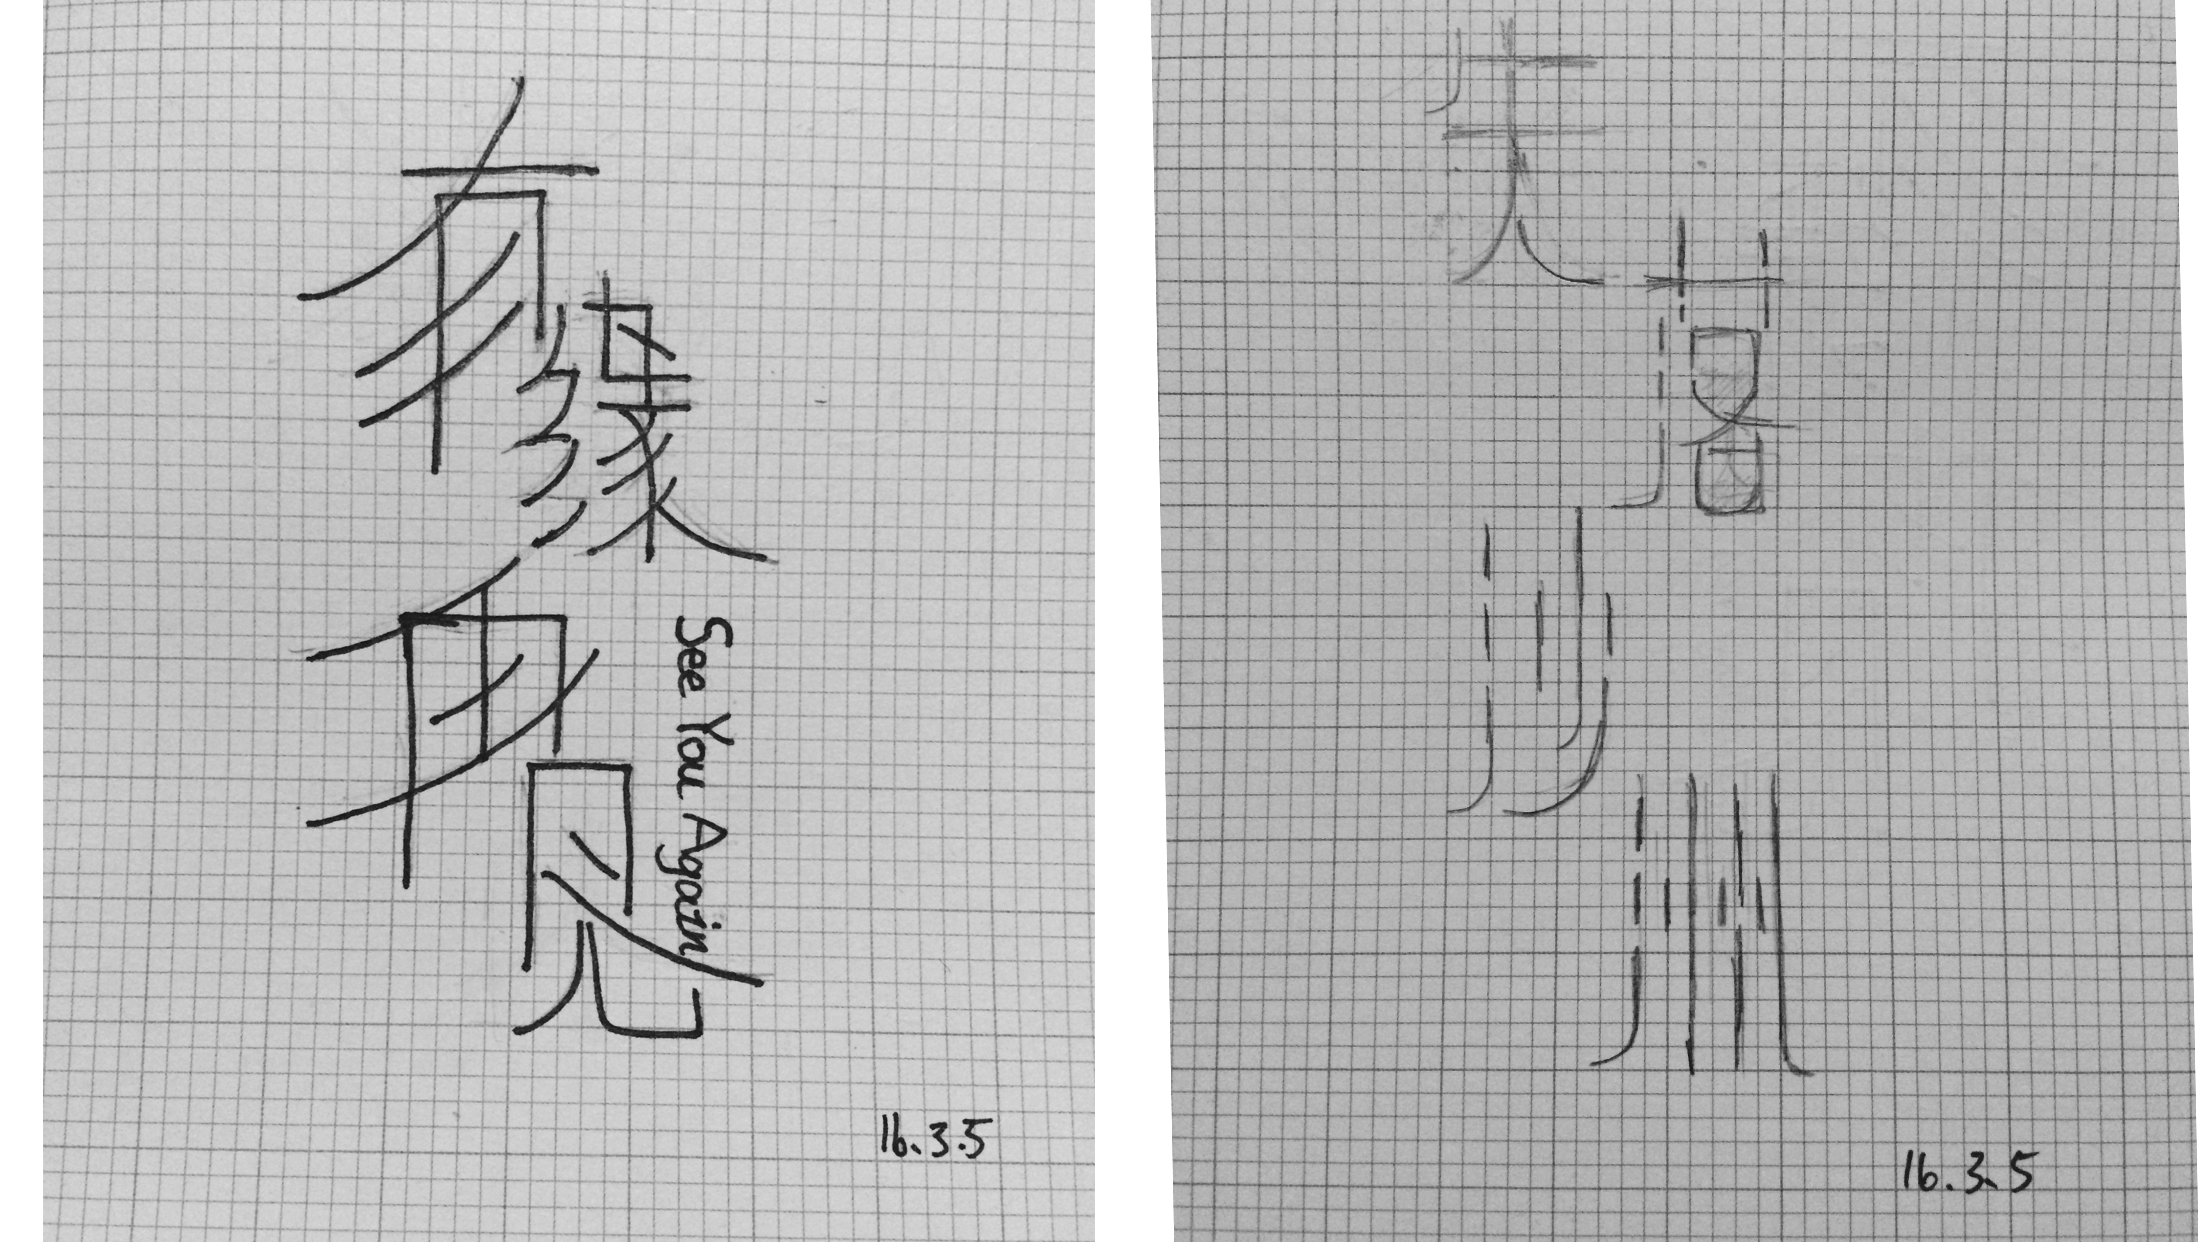 有缘
再见
See You Again
16.3.5
失落
沙洲
16.3.5